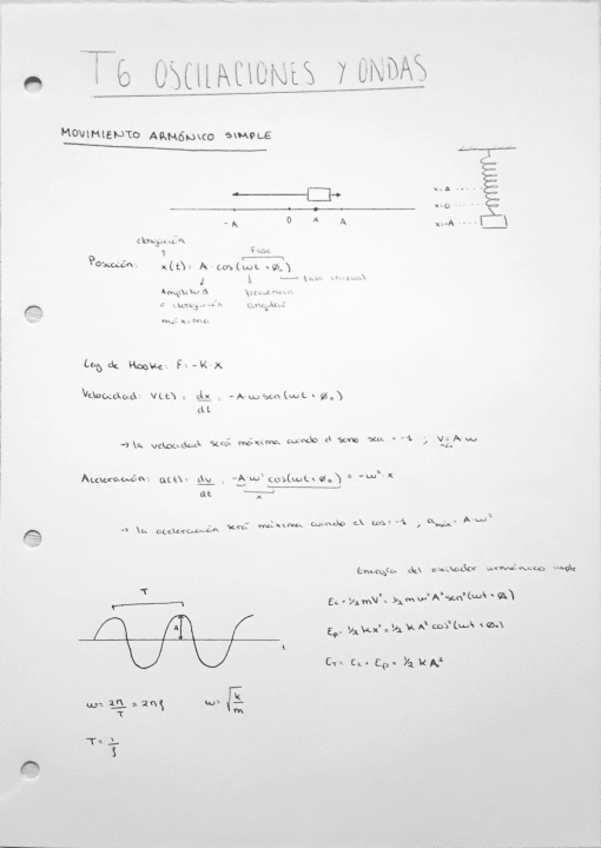 T6 OSCILACIONES Y ONDAS
MOVIMIENTO ARMÓNICO SIMPLE
-A 0 x A
x=A
x=0
x=-A
elongación
Fase
Posición: x(t) = A · cos(ωt + Ø₀)
fase inicial
Amplitud
o elongación
máxima
frecuencia
angular
Ley de Hooke: F = -K · x
Velocidad: V(t) = dx/dt = -A·ω sen(ωt + Ø₀)
→ la velocidad será máxima cuando el seno sea = -1 ; V = A·ω
Aceleración: a(t) = dv/dt = -A·ω² cos(ωt + Ø₀) = -ω² x
x
→ la aceleración será máxima cuando el cos = -1 , a máx = A·ω²
Energía del oxilador armónico simple
Ec = 1/2 mV² = 1/2 m ω² A² sen²(ωt + Ø₀)
Ep = 1/2 k x² = 1/2 k A² cos²(ωt + Ø₀)
ET = Ec + Ep = 1/2 k A²
T
A
t
ω = 2π/T = 2πf
ω = √k/m
T = 1/f